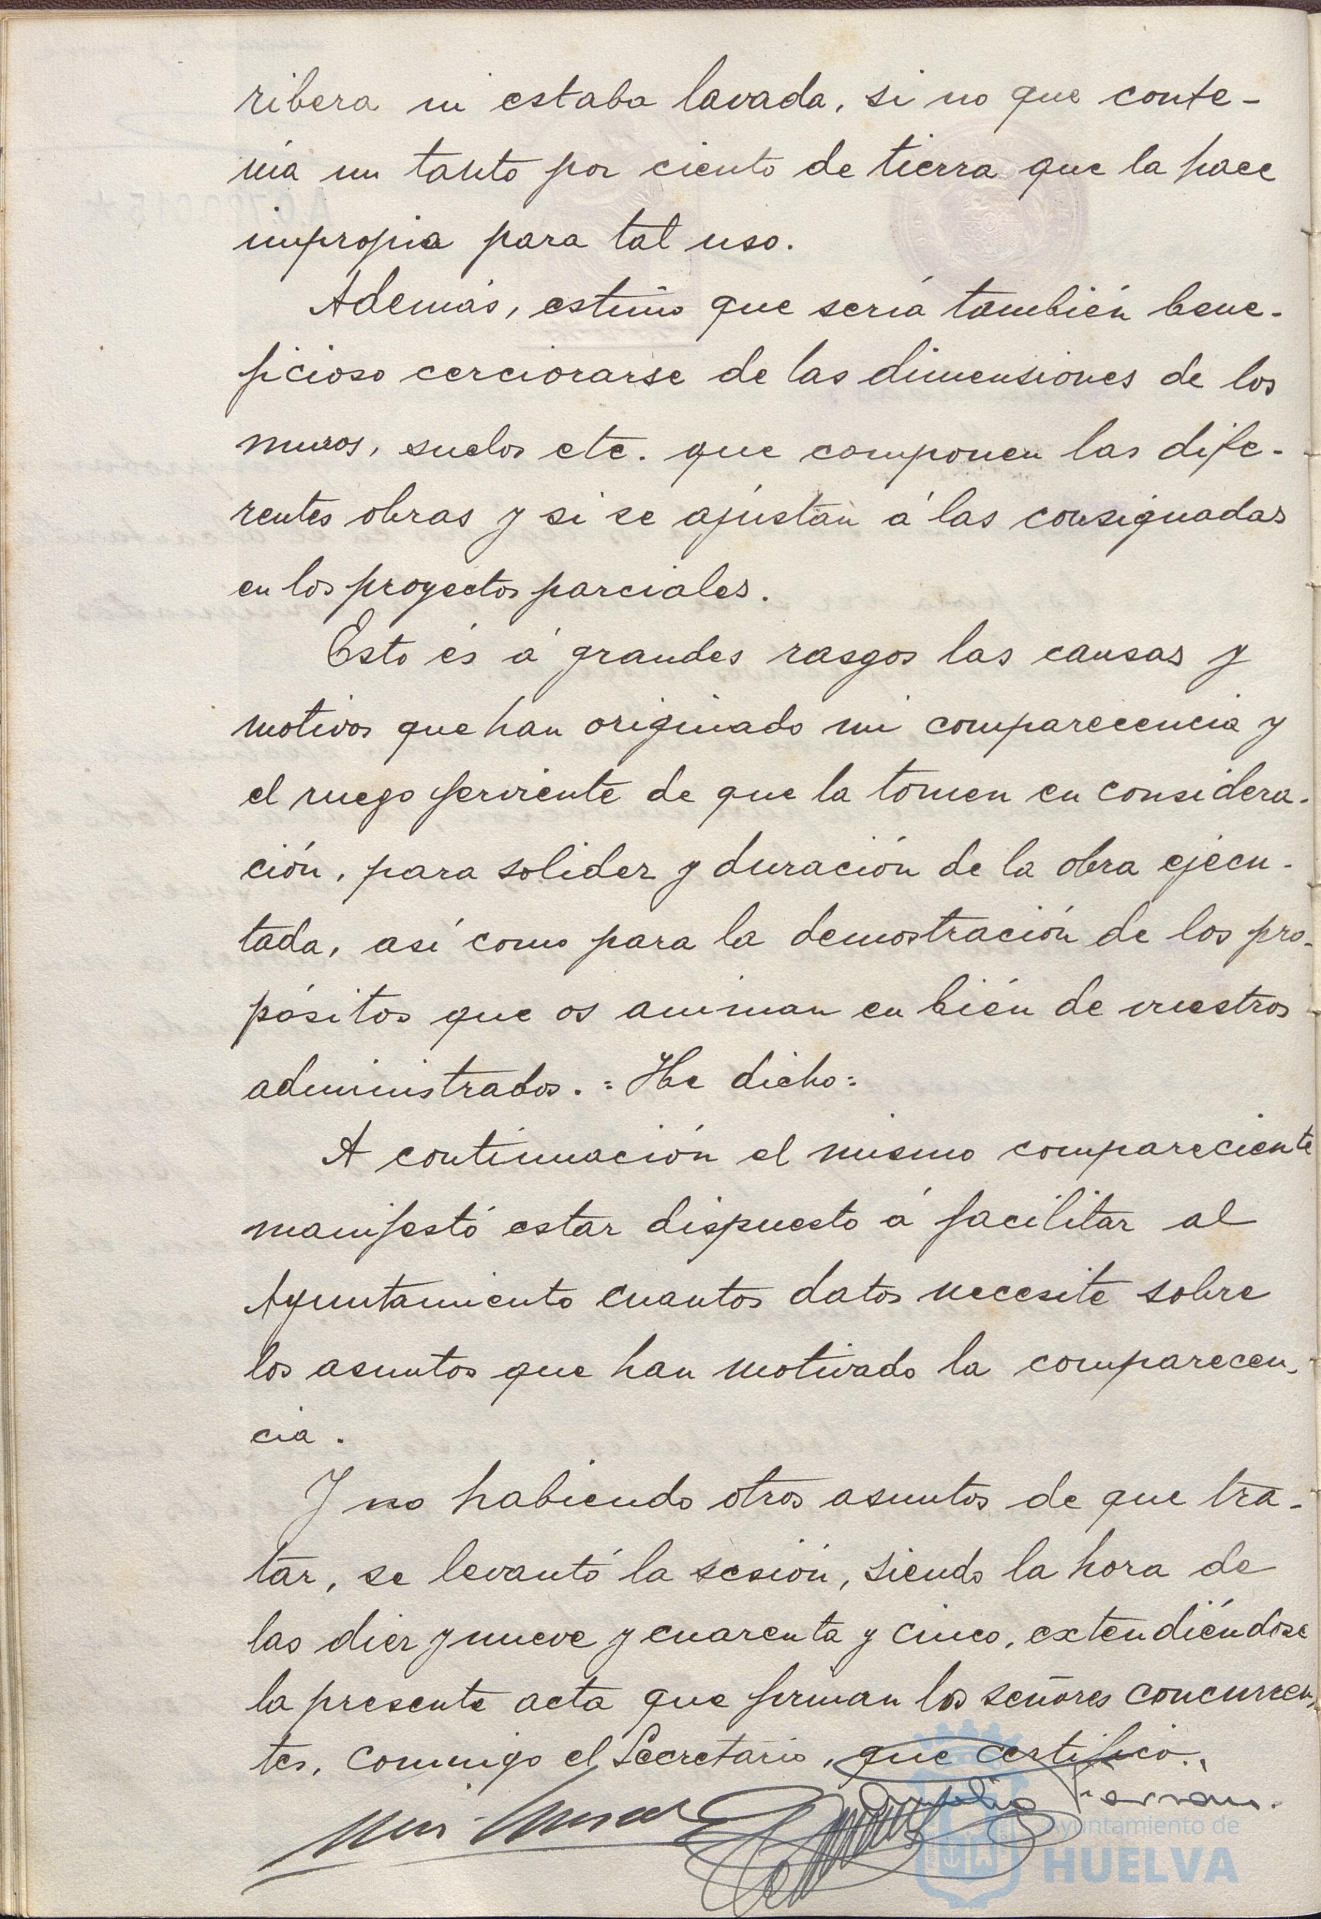 ribera ni estaba lavada, si no que conte-
nía un tanto por ciento de tierra que la hace
impropia para tal uso.
Además, estimo que sería también bene-
ficioso cerciorarse de las dimensiones de los
muros, suelos etc. que componen las dife-
rentes obras y si se ajustan á las consignadas
en los proyectos parciales.
Esto és á grandes rasgos las causas y
motivos que han originado mi comparecencia y
el ruego ferviente de que la tomen en considera-
ción, para solidez y duración de la obra ejecu-
tada, así como para la demostración de los pro-
pósitos que os animan en bién de vuestros
administrados. = He dicho =
A continuación el mismo compareciente
manifestó estar dispuesto á facilitar al
Ayuntamiento cuantos datos necesite sobre
los asuntos que han motivado la comparecen-
cia.
Y no habiendo otros asuntos de que tra-
tar, se levantó la sesión, siendo la hora de
las diez y nueve y cuarenta y cinco, extendiéndose
la presente acta que firman los señores concurren-
tes, conmigo el Secretario, que certifico.
Ayuntamiento de
HUELVA